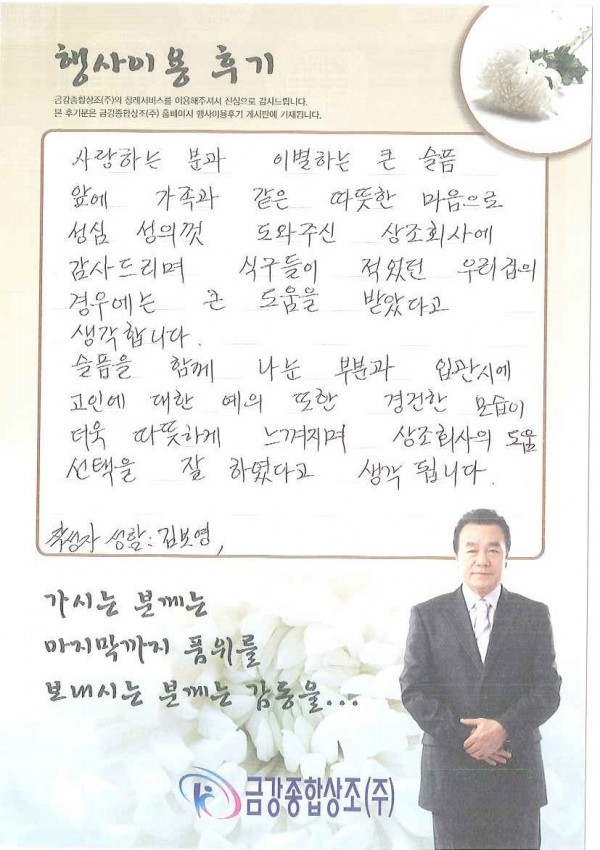 행사이용 후기
금강종합상조(주)의 장례서비스를 이용해주셔서 진심으로 감사드립니다.
본 후기분은 금강종합상조(주) 홈페이지 행사이용후기 게시판에 기재됩니다.
사랑하는 분과 이별하는 큰 슬픔
앞에 가족과 같은 따뜻한 마음으로
성심 성의껏 도와주신 상조회사에
감사드리며 식구들이 적었던 우리집의
경우에는 큰 도움을 받았다고
생각합니다.
슬픔을 함께 나눈 부분과 입관시에
고인에 대한 예의 또한 경건한 모습이
더욱 따뜻하게 느껴지며 상조회사의 도움
선택을 잘 하였다고 생각 됩니다.
작성자 성함: 김보영,
가시는 분께는
마지막까지 품위를
보내시는 분께는 감동을...
금강종합상조(주)